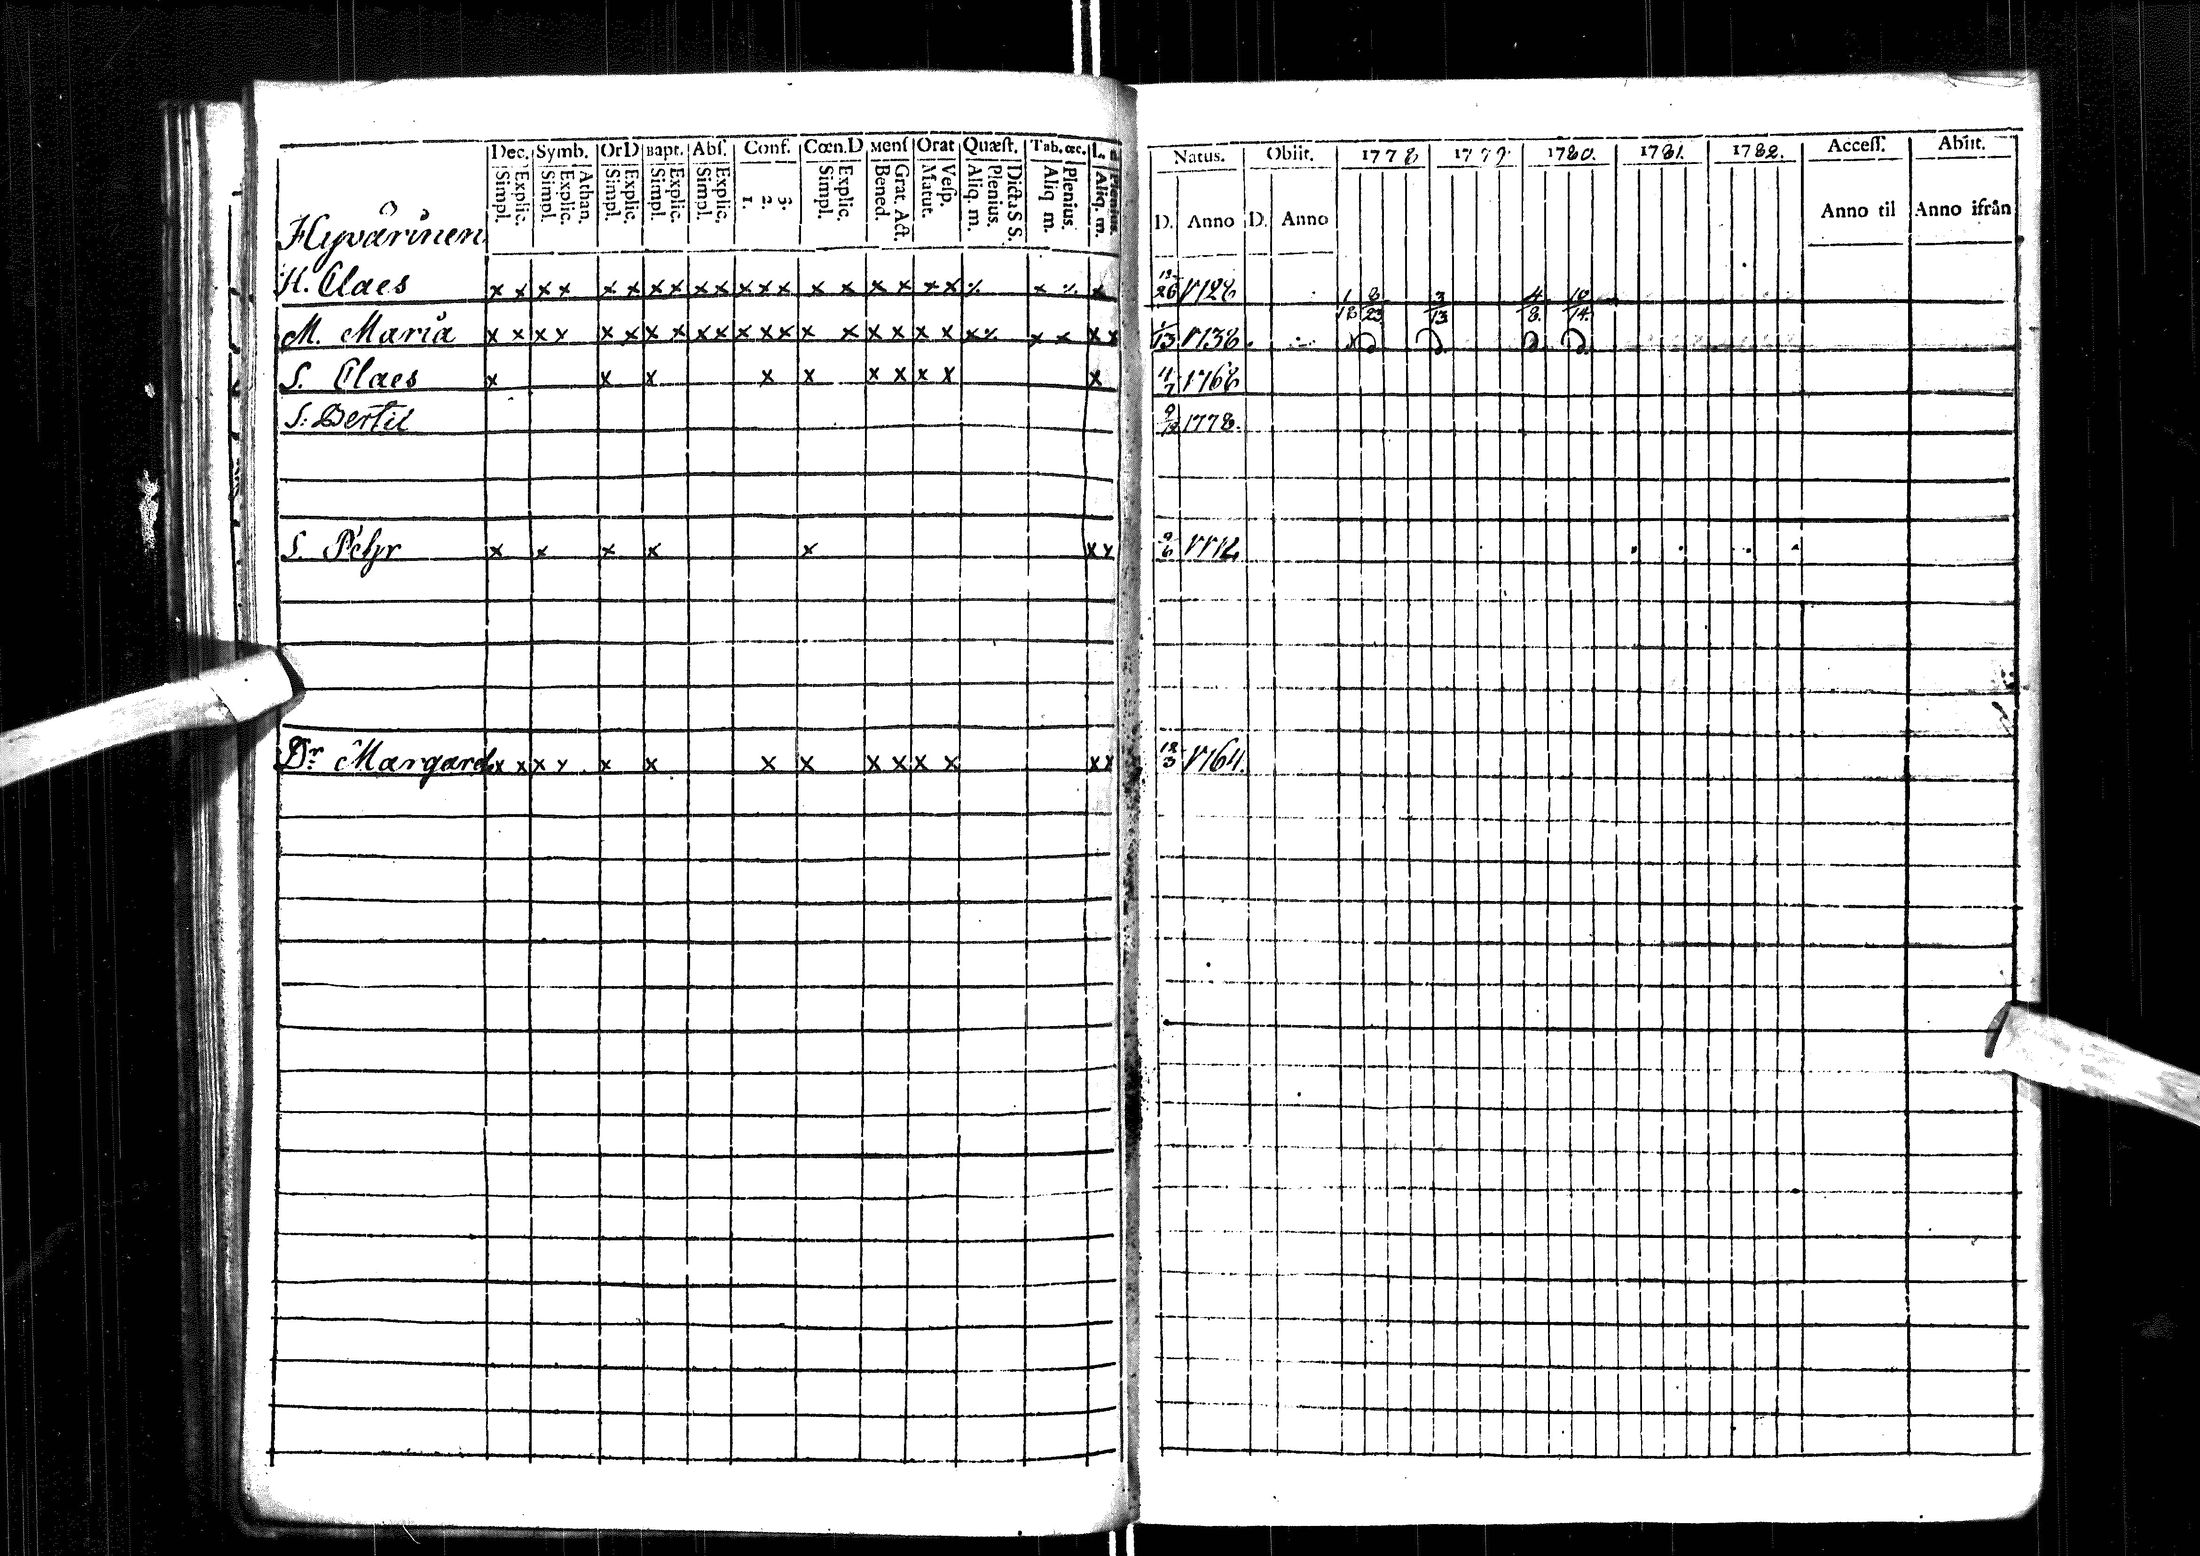 Dec. Symb. Or D Bapt. Abſ. Conf. Cœn. D Menſ Orat Quæſt. Tab. œc. L.
Simpl. Explic. Simpl. Explic. Athan. Simpl. Explic. Simpl. Explic. Simpl. Explic. 1. 2. 3. Simpl. Explic. Bened. Grat. Act. Matut. Veſp. Aliq. m. Plenius. Dicta S S. Aliq m. Plenius. Aliq. m. Plenius.
Hyvärinen
H. Claes x x x x x x x x x x x x x x x x x x x ·/. x ·/. x
M. Maria x x x x x x x x x x x x x x x x x x x x ·/. x x x x
S. Claes x x x x x x x x x x
S. Bertil
S. Pehr x x x x x x x
Dr Margareta x x x x x x x x x x x x x x
Natus. Obiit. 1778 1779. 1780. 1781. 1782. Acceſſ. Abiit.
D. Anno D. Anno Anno til Anno ifrån
12/26 1728 1/18 8/23 3/13 4/8. 10/14.
1/13 1738.
4/7 1768
9/12 1778.
9/6 1772
12/3 1764.